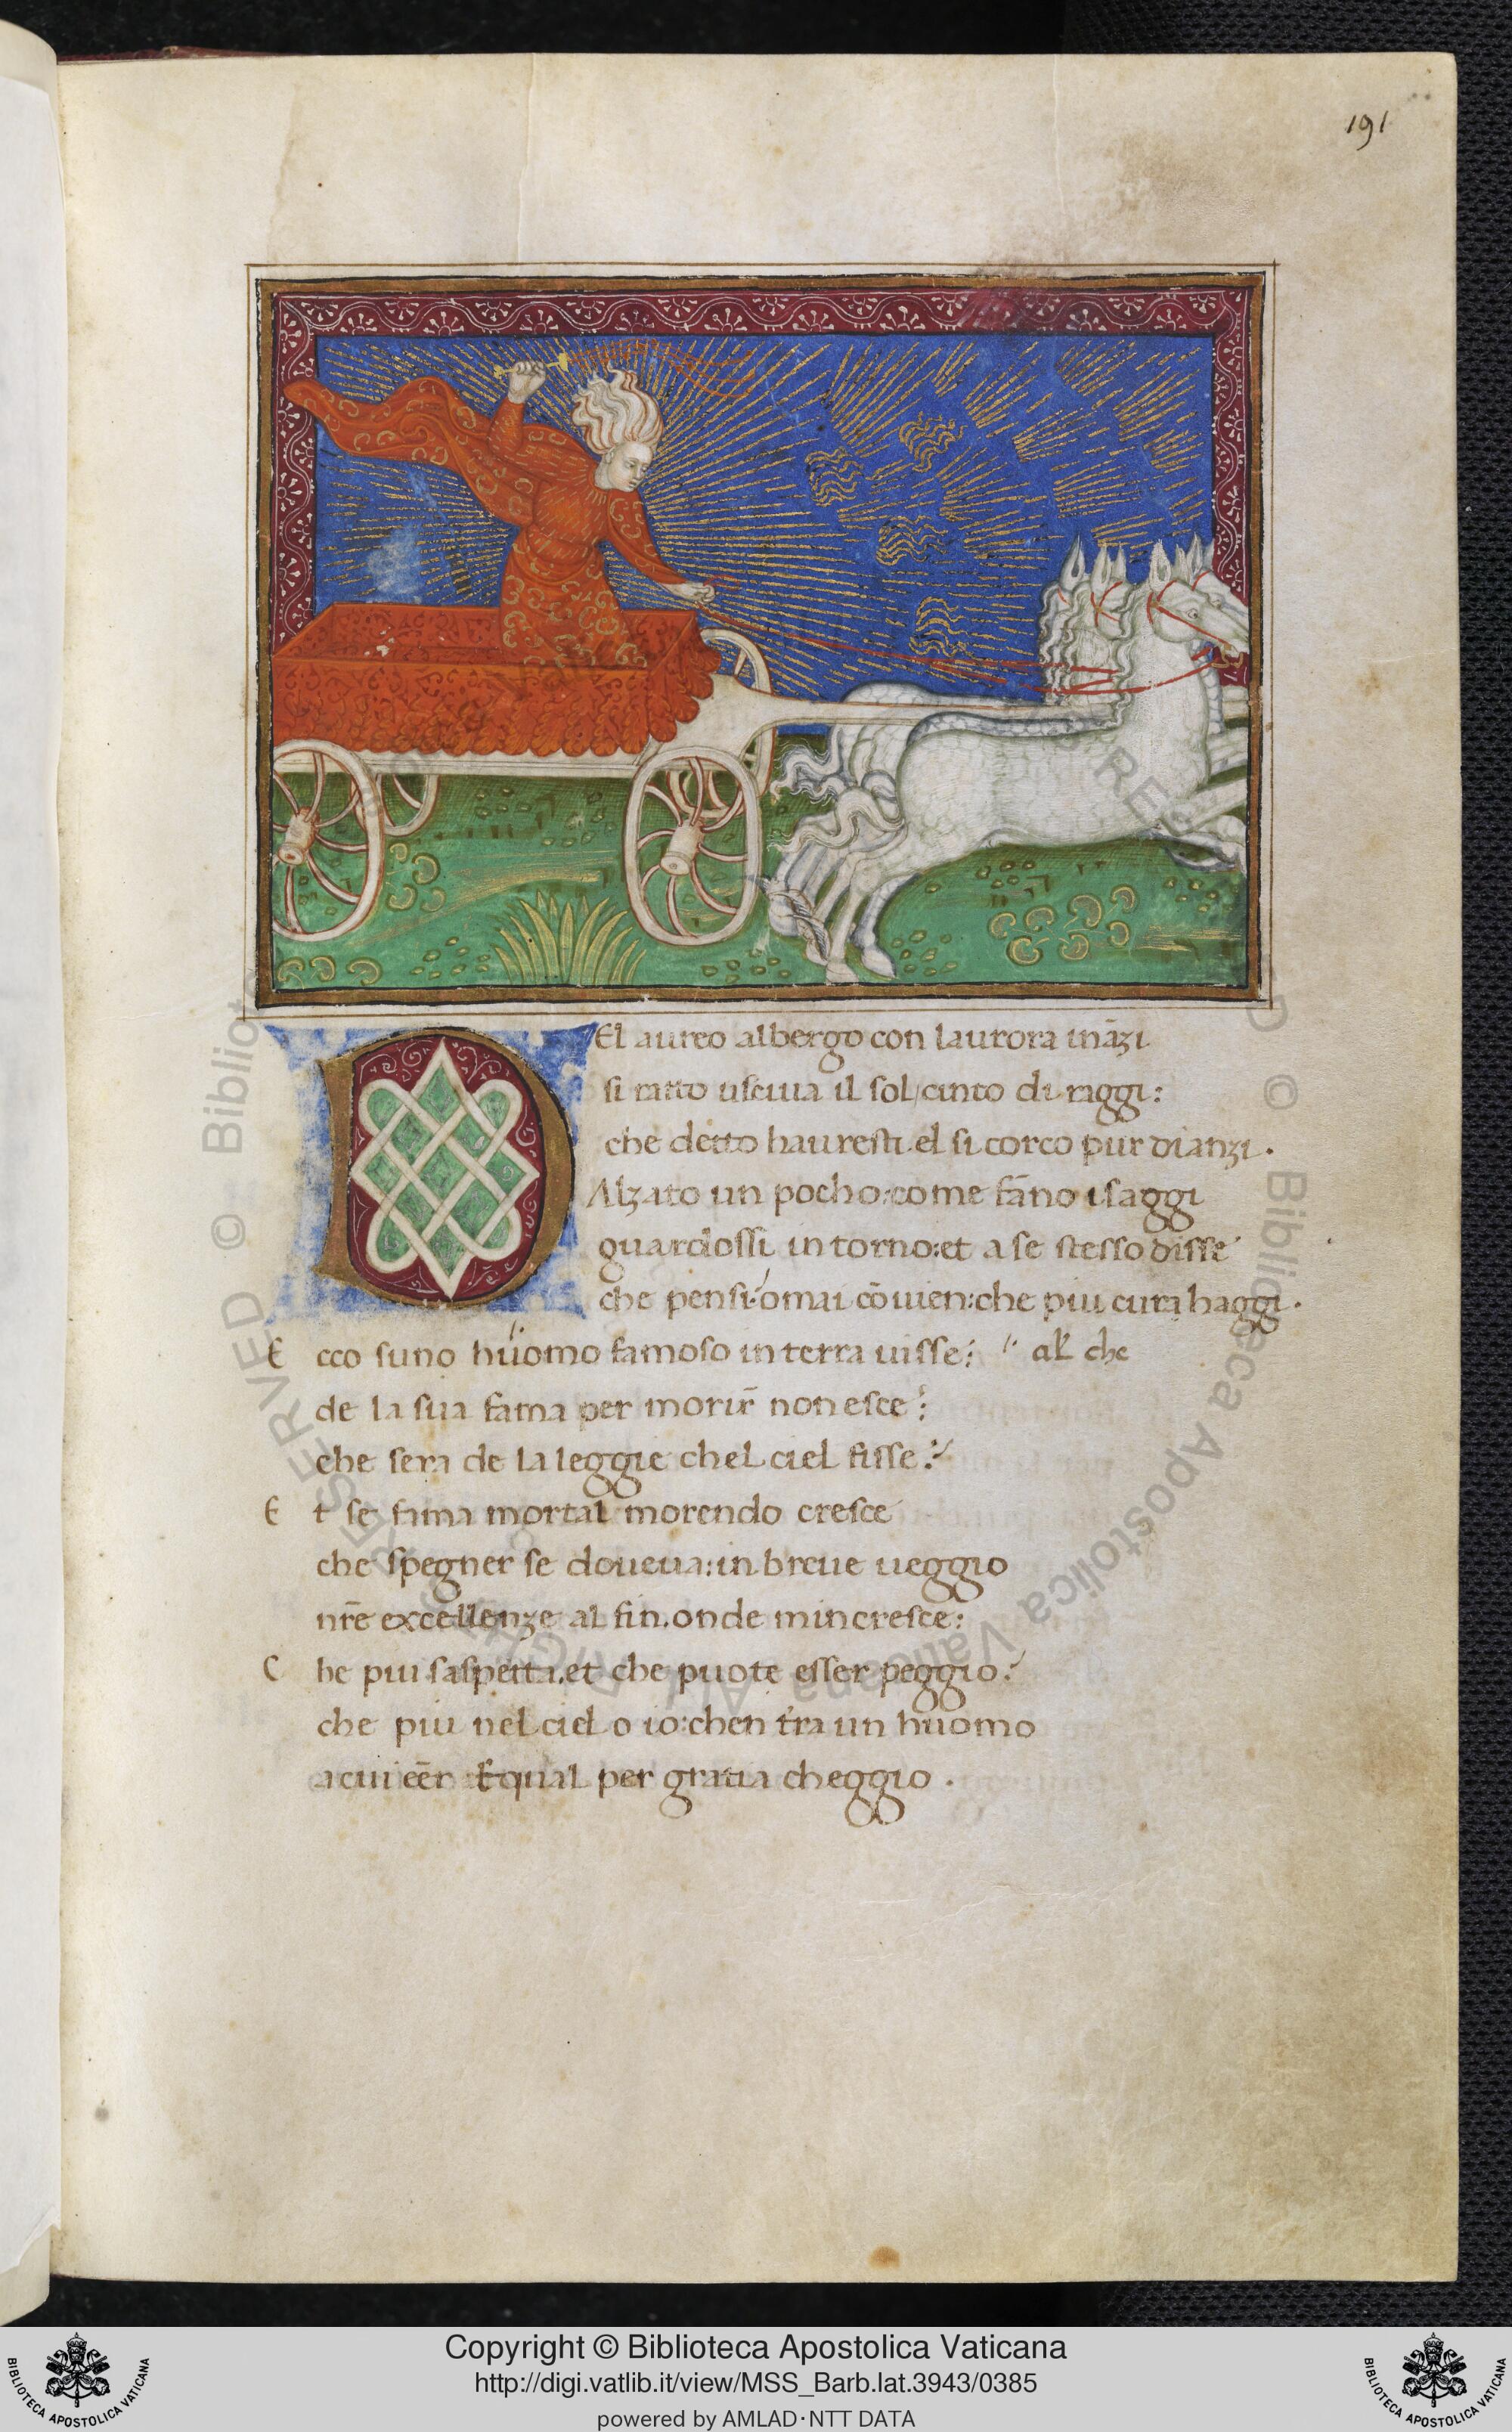 191
DEl aureo albergo con laurora inãzi
si ratto usciua il sol cinto di raggi:
che detto hauresti.el si corco pur dianzi.
Alzato un pocho:come fãno i saggi
guardossi in torno:et a se stesso disse
che pensi? omai cõuien:che piu cura haggi.
Ecco suno huomo famoso in terra uisse: al' che
de la sua fama per morir̃ non esce:
che sera de la leggie chel ciel fisse?
Et se fama mortal morendo cresce
che spegner se doueua:in breue ueggio
nr̃e excellenze al fin.onde mincresce:
Che piu saspetta.et che puote esser peggio?
che piu nel ciel o io:chen t'ra un huomo
a cui eẽr equal per gratia cheggio.
Copyright © Biblioteca Apostolica Vaticana
http://digi.vatlib.it/view/MSS_Barb.lat.3943/0385
powered by AMLAD·NTT DATA
BIBLIOTECA APOSTOLICA VATICANA
BIBLIOTECA APOSTOLICA VATICANA